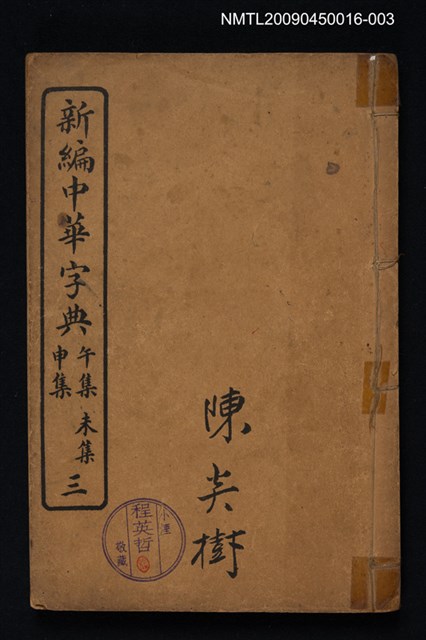 NMTL20090450016-003
新編中華字典
午集
未集
申集
三
陳炎樹
程英哲
敬藏